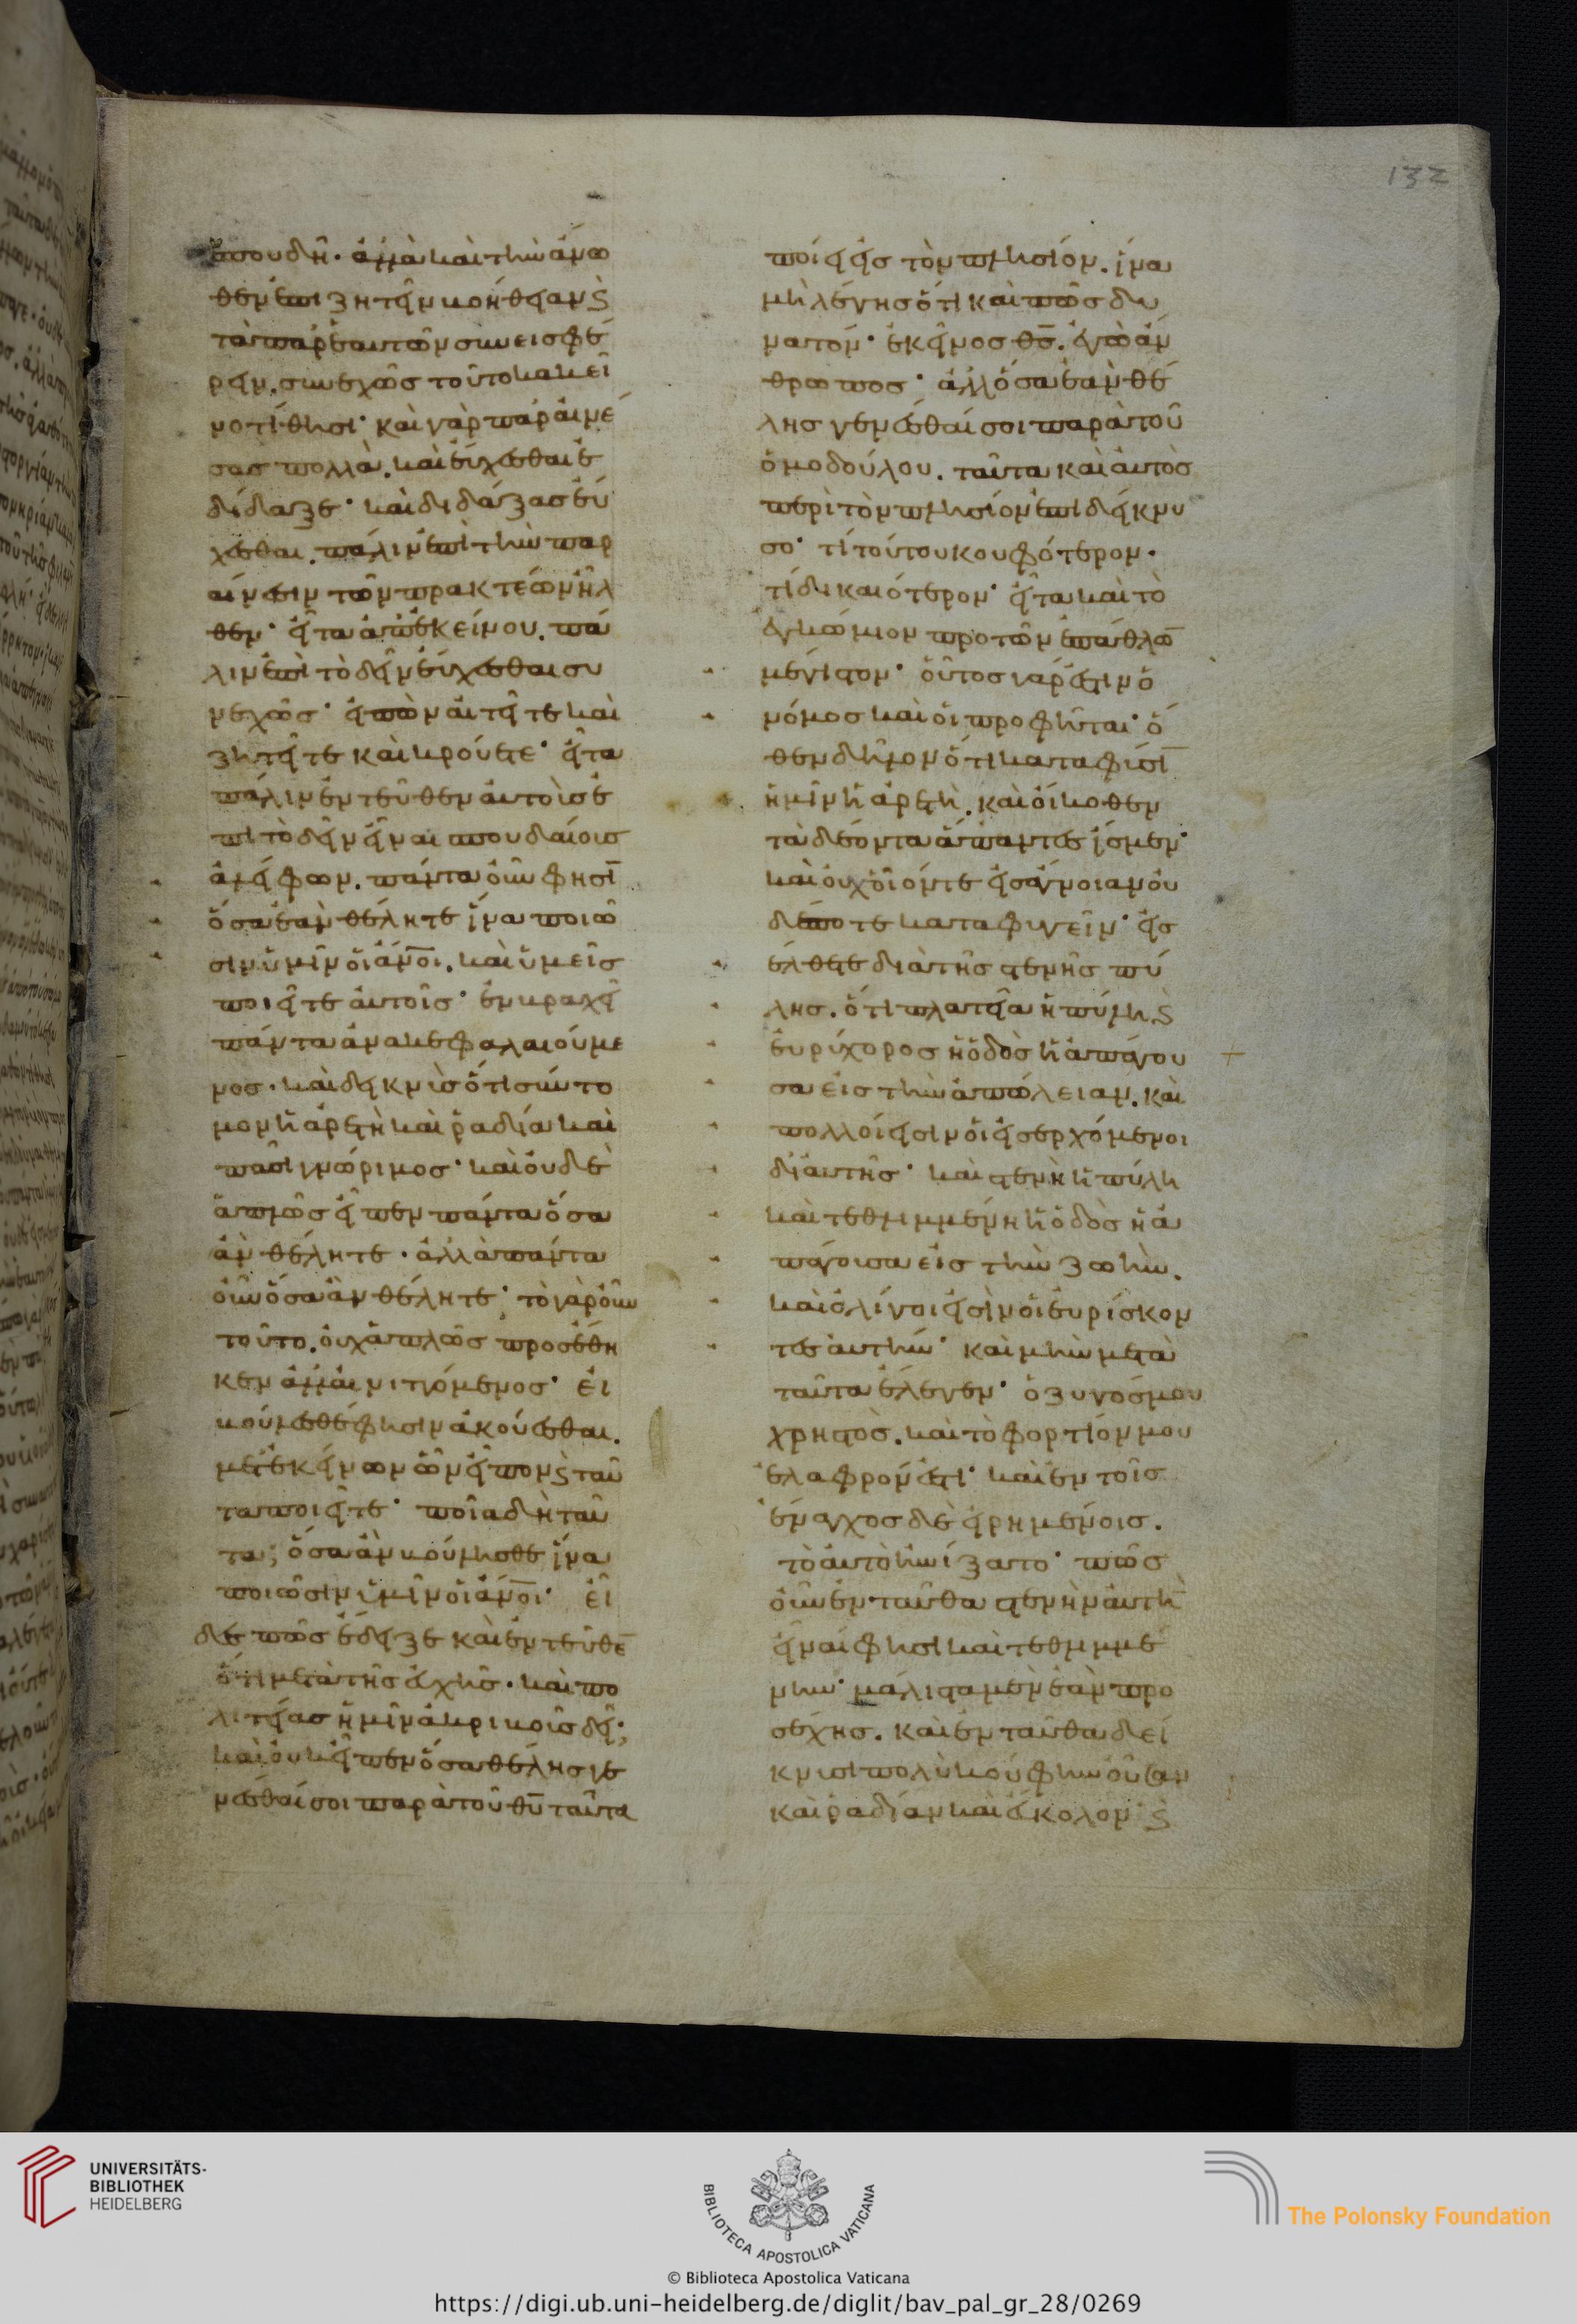 132
σπουδῆ· ἀλλὰ καὶ τὴν ἄνω
θεν ἐπιζητεῖν βοήθειαν ϗ
τὰ παρ' ἑαυτῶν συνεισφέ
ρειν. συνεχῶς τοῦτο κἀκεῖ
νο τίθησι· καὶ γὰρ παραινέ
σας πολλὰ. καὶ εὔχεσθαι ἐ
δίδαξε· καὶ διδάξας εὔ
χεσθαι. πάλιν ἐπὶ τὴν παρ
αίνεσιν τῶν πρακτέων ἦλ
θεν· εἶτα ἀπ' ἐκείνου. πά
λιν ἐπὶ τὸ δεῖν εὔχεσθαι συ
νεχῶς· εἰπὼν αἰτεῖτε καὶ
ζητεῖτε καὶ κρούετε· εἶτα
πάλιν ἐντεῦθεν αὐτοῖς ἐ
πὶ τὸ δεῖν εἶναι σπουδαίοις
ἀλείφων. πάντα οὖν φησῒ
ὅσα ἐὰν θέλητε ἵνα ποιῶ
σιν ὑμῖν οἱ ἄν̅ο̅ι. καὶ ὑμεῖς
ποιεῖτε αὐτοῖς· ἐν βραχεῖ
πάντα ἀνακεφαλαιούμε
νος. καὶ δεικνὺς ὅτι σύντο
μον ἡ ἀρετὴ καὶ ῥαδία καὶ
πᾶσι γνώριμος· καὶ οὐδὲ
ἁπλῶς εἶπεν πάντα ὅσα
ἂν θέλητε· ἀλλὰ πάντα
οὖν ὅσα ἂν θέλητε· τὸ γὰρ οὖν
τοῦτο. οὐχ ἁπλῶς προσέθη
κεν ἀλλ' αἰνιττόμενος· εἰ
βούλεσθέ φησιν ἀκούεσθαι.
μετ' ἐκείνων ὧν εἶπον ϗ ταῦ
τα ποιεῖτε· ποῖα δὴ ταῦ
τα; ὅσα ἂν βούλησθε ἵνα
ποιῶσιν ὑμῖν οἱ ἄν̅ο̅ι· εἶ
δες πῶς ἔδειξε καὶ ἐντεῦθε̅
ὅτι μετὰ τῆς εὐχῆς. καὶ πο
λιτείας ἡμῖν ἀκριβοῦς δεῖ;
καὶ οὐκ εἶπεν ὅσα θέλης γε
νέσθαί σοι παρὰ τοῦ θ̅υ̅ ταῦτα
ποίει εἰς τὸν πλησίον. ἵνα
μὴ λέγης ὅτι καὶ πῶς δυ
νατόν· ἐκεῖνος θ̅ς̅. ἐγὼ ἄν
θρωπος· ἀλλ' ὅσα ἐὰν θέ
λης γενέσθαί σοι παρὰ τοῦ
ὁμοδούλου. ταῦτα καὶ αὐτὸς
περὶ τὸν πλησίον ἐπιδείκνυ
σο· τί τούτου κουφότερον.
τί δικαιότερον· εἶτα καὶ τὸ
ἐγκώμιον πρὸ τῶν ἐπάθλω̅
μέγιστον· οὗτος γάρ ἐστιν ὁ
νόμος καὶ οἱ προφῆται· ὅ
θεν δῆλον ὅτι κατὰ φύσι̅
ἡμῖν ἡ ἀρετὴ. καὶ οἴκοθεν
τὰ δέοντα ἅπαντες ἴσμεν·
καὶ οὐχ οἷόν τε εἰς ἄγνοιαν οὐ
δέποτε καταφυγεῖν· εἰς
έλθετε διὰ τῆς στενῆς πύ
λης. ὅτι πλατεῖα ἡ πύλη ϗ
εὐρύχορος ἡ ὁδὸς ἡ ἀπάγου
σα εἰς τὴν ἀπώλειαν. καὶ
πολλοί εἰσιν οἱ εἰσερχόμενοι
δι' αὐτῆς· καὶ στενὴ ἡ πύλη
καὶ τεθλιμμένη ἡ ὁδὸς ἡ ἀ
πάγουσα εἰς τὴν ζωήν.
καὶ ὀλίγοι εἰσὶν οἱ εὑρίσκον
τες αὐτήν· καὶ μὴν μετὰ
ταῦτα ἔλεγεν· ὁ ζυγός μου
χρηστὸς. καὶ τὸ φορτίον μου
ἐλαφρόν ἐστι· καὶ ἐν τοῖς
ἔναγχος δὲ εἰρημένοις.
τὸ αὐτὸ ἠνίξατο· πῶς
οὖν ἐνταῦθα στενὴν αὐτὴ̅
εἶναί φησι καὶ τεθλιμμέ
νην· μάλιστα μὲν ἐὰν προ
σέχης. καὶ ἐνταῦθα δεί
κνυσι πολὺ κούφην οὖσαν
καὶ ῥαδίαν καὶ εὔκολον· ϗ
UNIVERSITÄTS-
BIBLIOTHEK
HEIDELBERG
BIBLIOTECA APOSTOLICA VATICANA
The Polonsky Foundation
© Biblioteca Apostolica Vaticana
https://digi.ub.uni-heidelberg.de/diglit/bav_pal_gr_28/0269